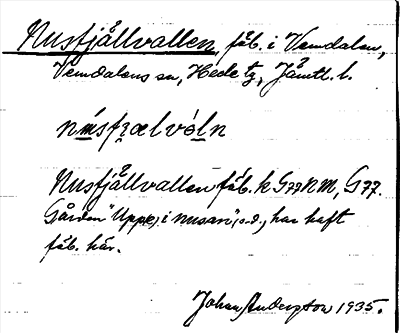 Nusfjällvallen, fäb. i Vemdalen,
Vemdalens sn, Hede tg, Jämtl. l.
Nusfjällvallen fäb. k G77 NM, G77.
Gården "Uppe i nusan", s.d., har haft
fäb. här.
Johan Anderson 1935.